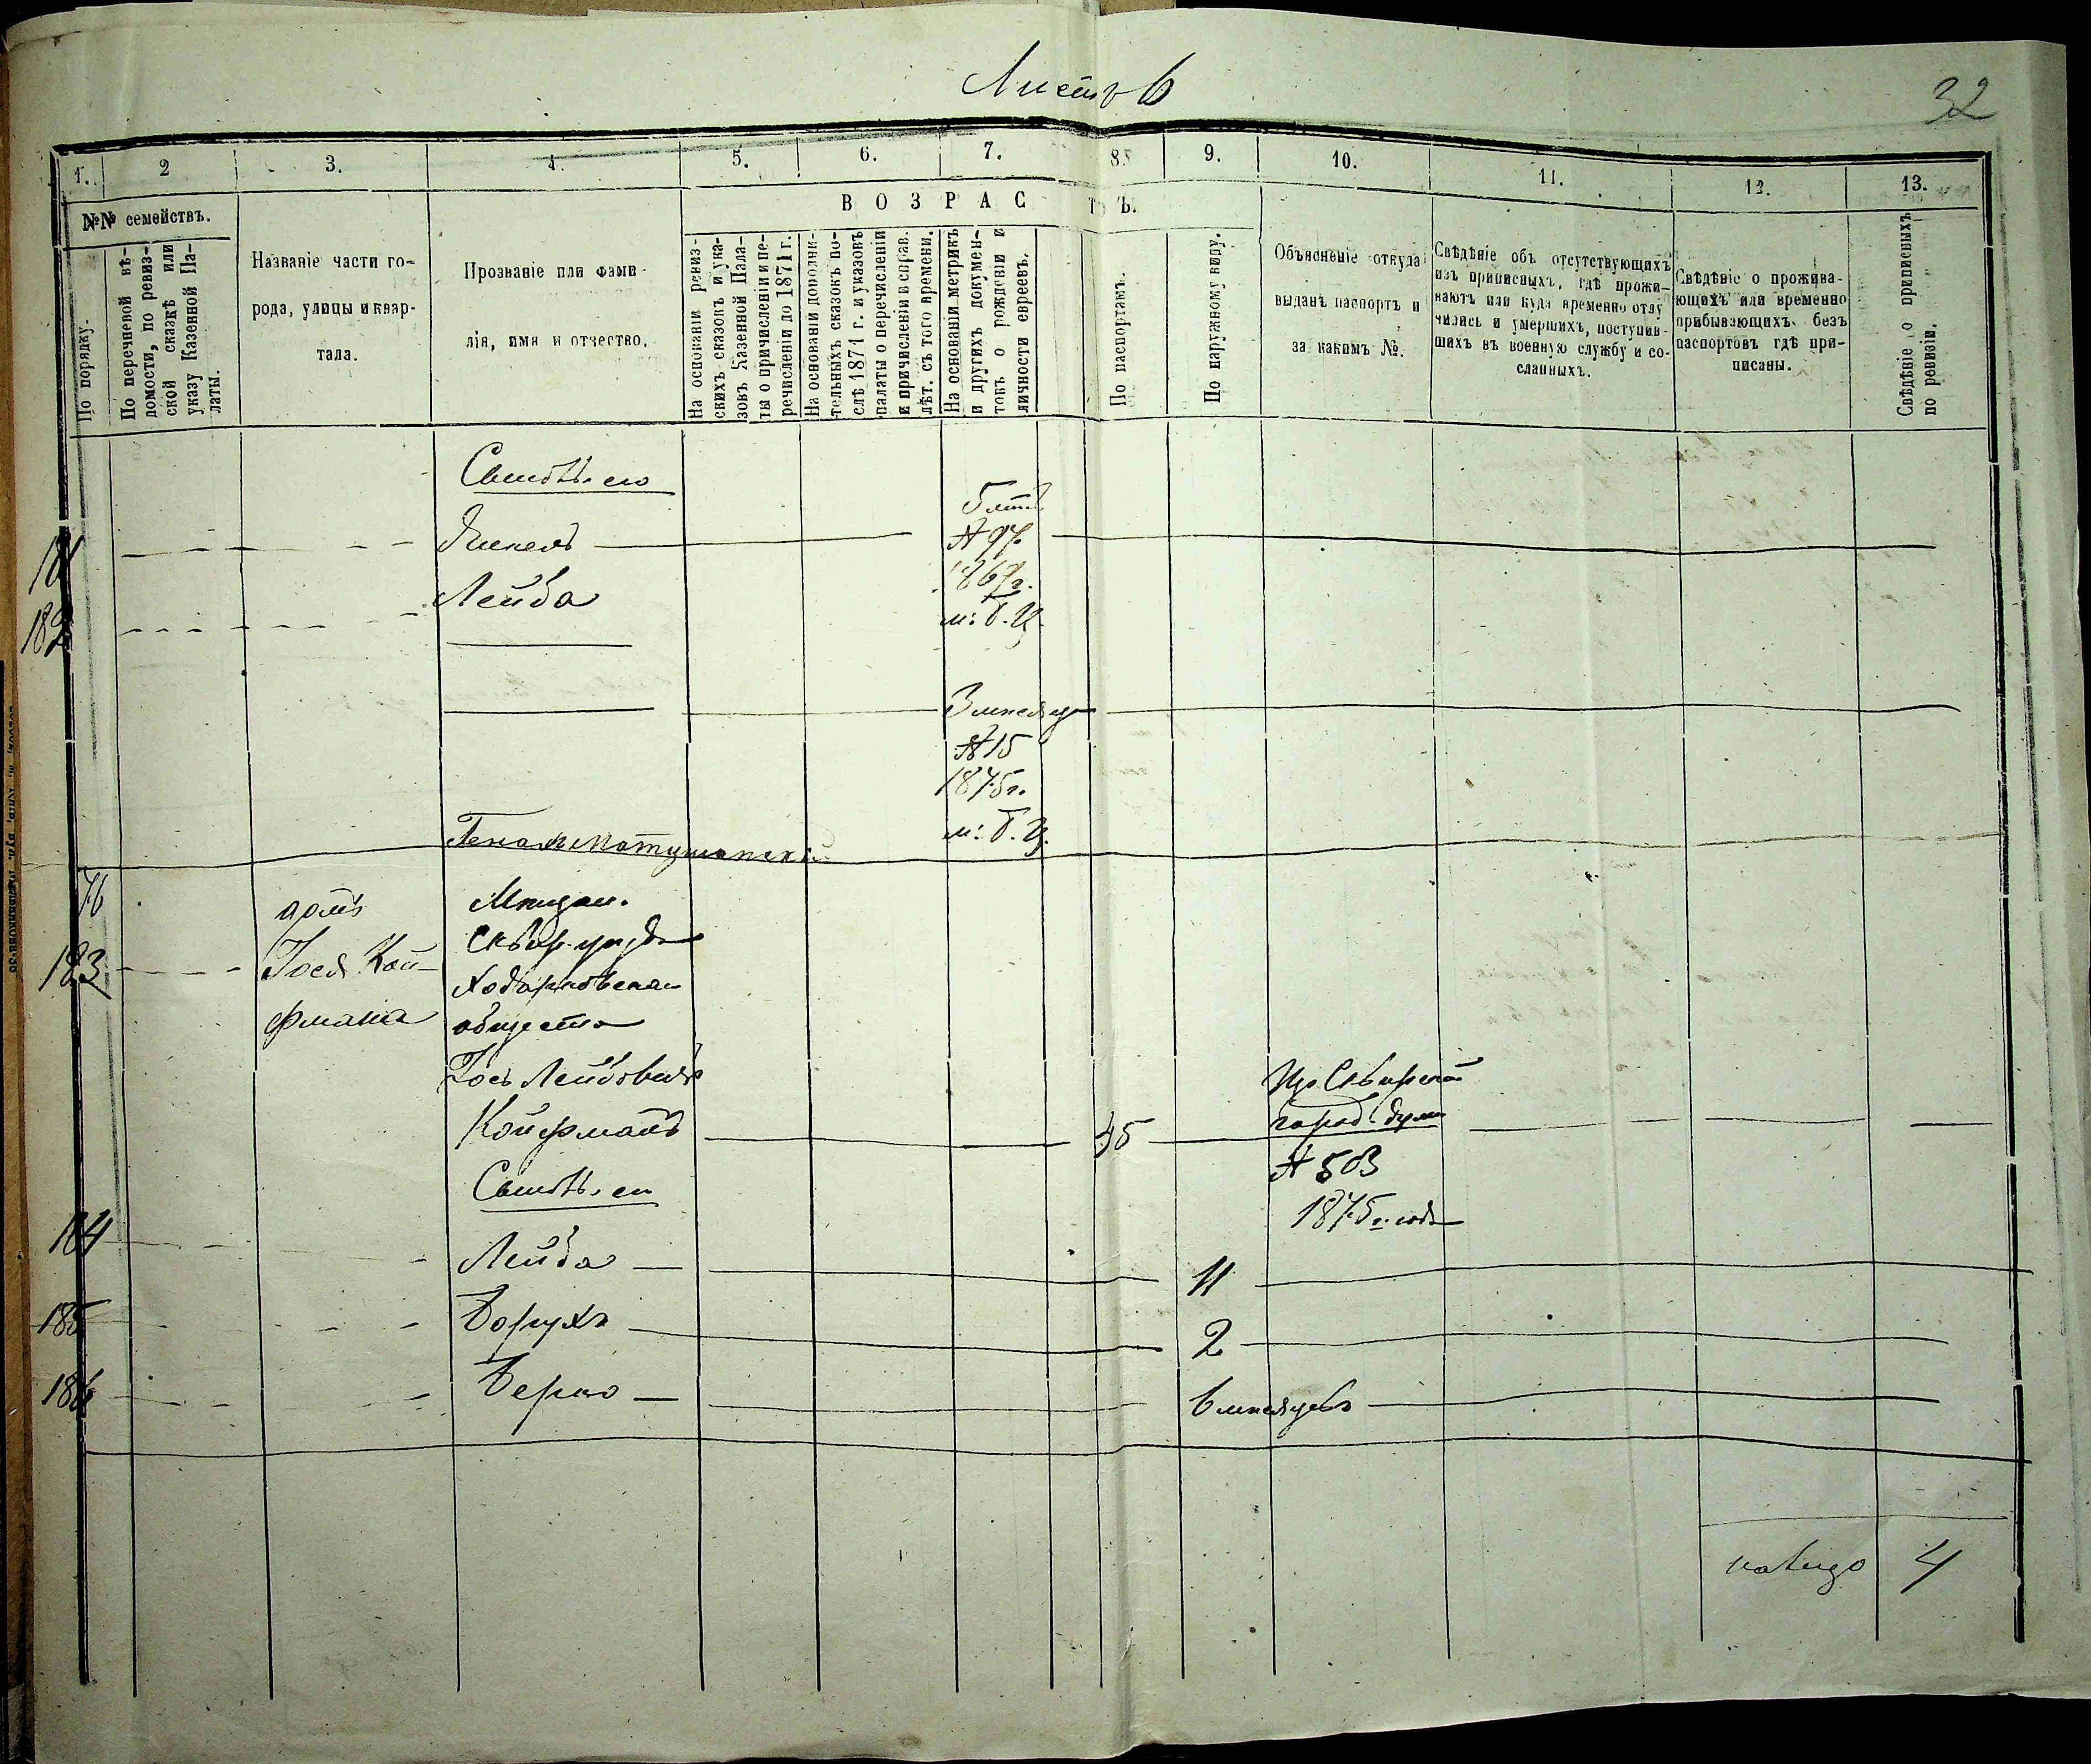 Листъ 6
32
1.
2
3.
4.
5.
6.
7.
8.
9.
10.
11.
12.
13.
№№ семействъ.
По порядку.
По перечневой вѣ-
домости, по ревиз-
ской сказкѣ или
указу Казенной Па-
латы.
Названіе части го-
рода, улицы и квар-
тала.
Прозваніе или фами-
лія, имя и отчество.
ВОЗРАСТЪ.
На основаніи ревиз-
скихъ сказокъ и ука-
зовъ Казенной Пала-
ты о причисленіи и пе-
речисленіи до 1871 г.
На основаніи дополни-
тельныхъ сказокъ по-
слѣ 1871 г. и указовъ
палаты о перечисленіи
и причисленіи в справ.
лѣт. съ того времени.
На основаніи метрикъ
и другихъ докумен-
товъ о рожденіи и
личности евреевъ.
По паспортамъ.
По наружному виду.
Объясненіе откуда
выданъ паспортъ и
за какимъ №.
Свѣдѣніе объ отсутствующихъ
изъ приписныхъ, гдѣ прожи-
ваютъ или куда временно отлу
чились и умершихъ, поступив-
шихъ въ военную службу и со-
сланныхъ.
Свѣдѣніе о прожива-
ющихъ или временно
прибывающихъ безъ
паспортовъ гдѣ при-
писаны.
Свѣдѣніе о приписныхъ
по ревизіи.
5 лѣтъ
181
№ 97
Лейба
182
м: Б. Ц.
3 мѣсяца
№ 15
1875 г.
м: Б. Ц.
76
домъ
Мѣщан.
Сквир. уѣзда
183
Іося Кой-
фмана
общества
Іось Лейбовичъ
Из Сквирской
Койфманъ
45
город. думы
№ 503
1875 года
184
Лейба
11
185
Борухъ
2
186
Берко
6 мѣсяцевъ
4